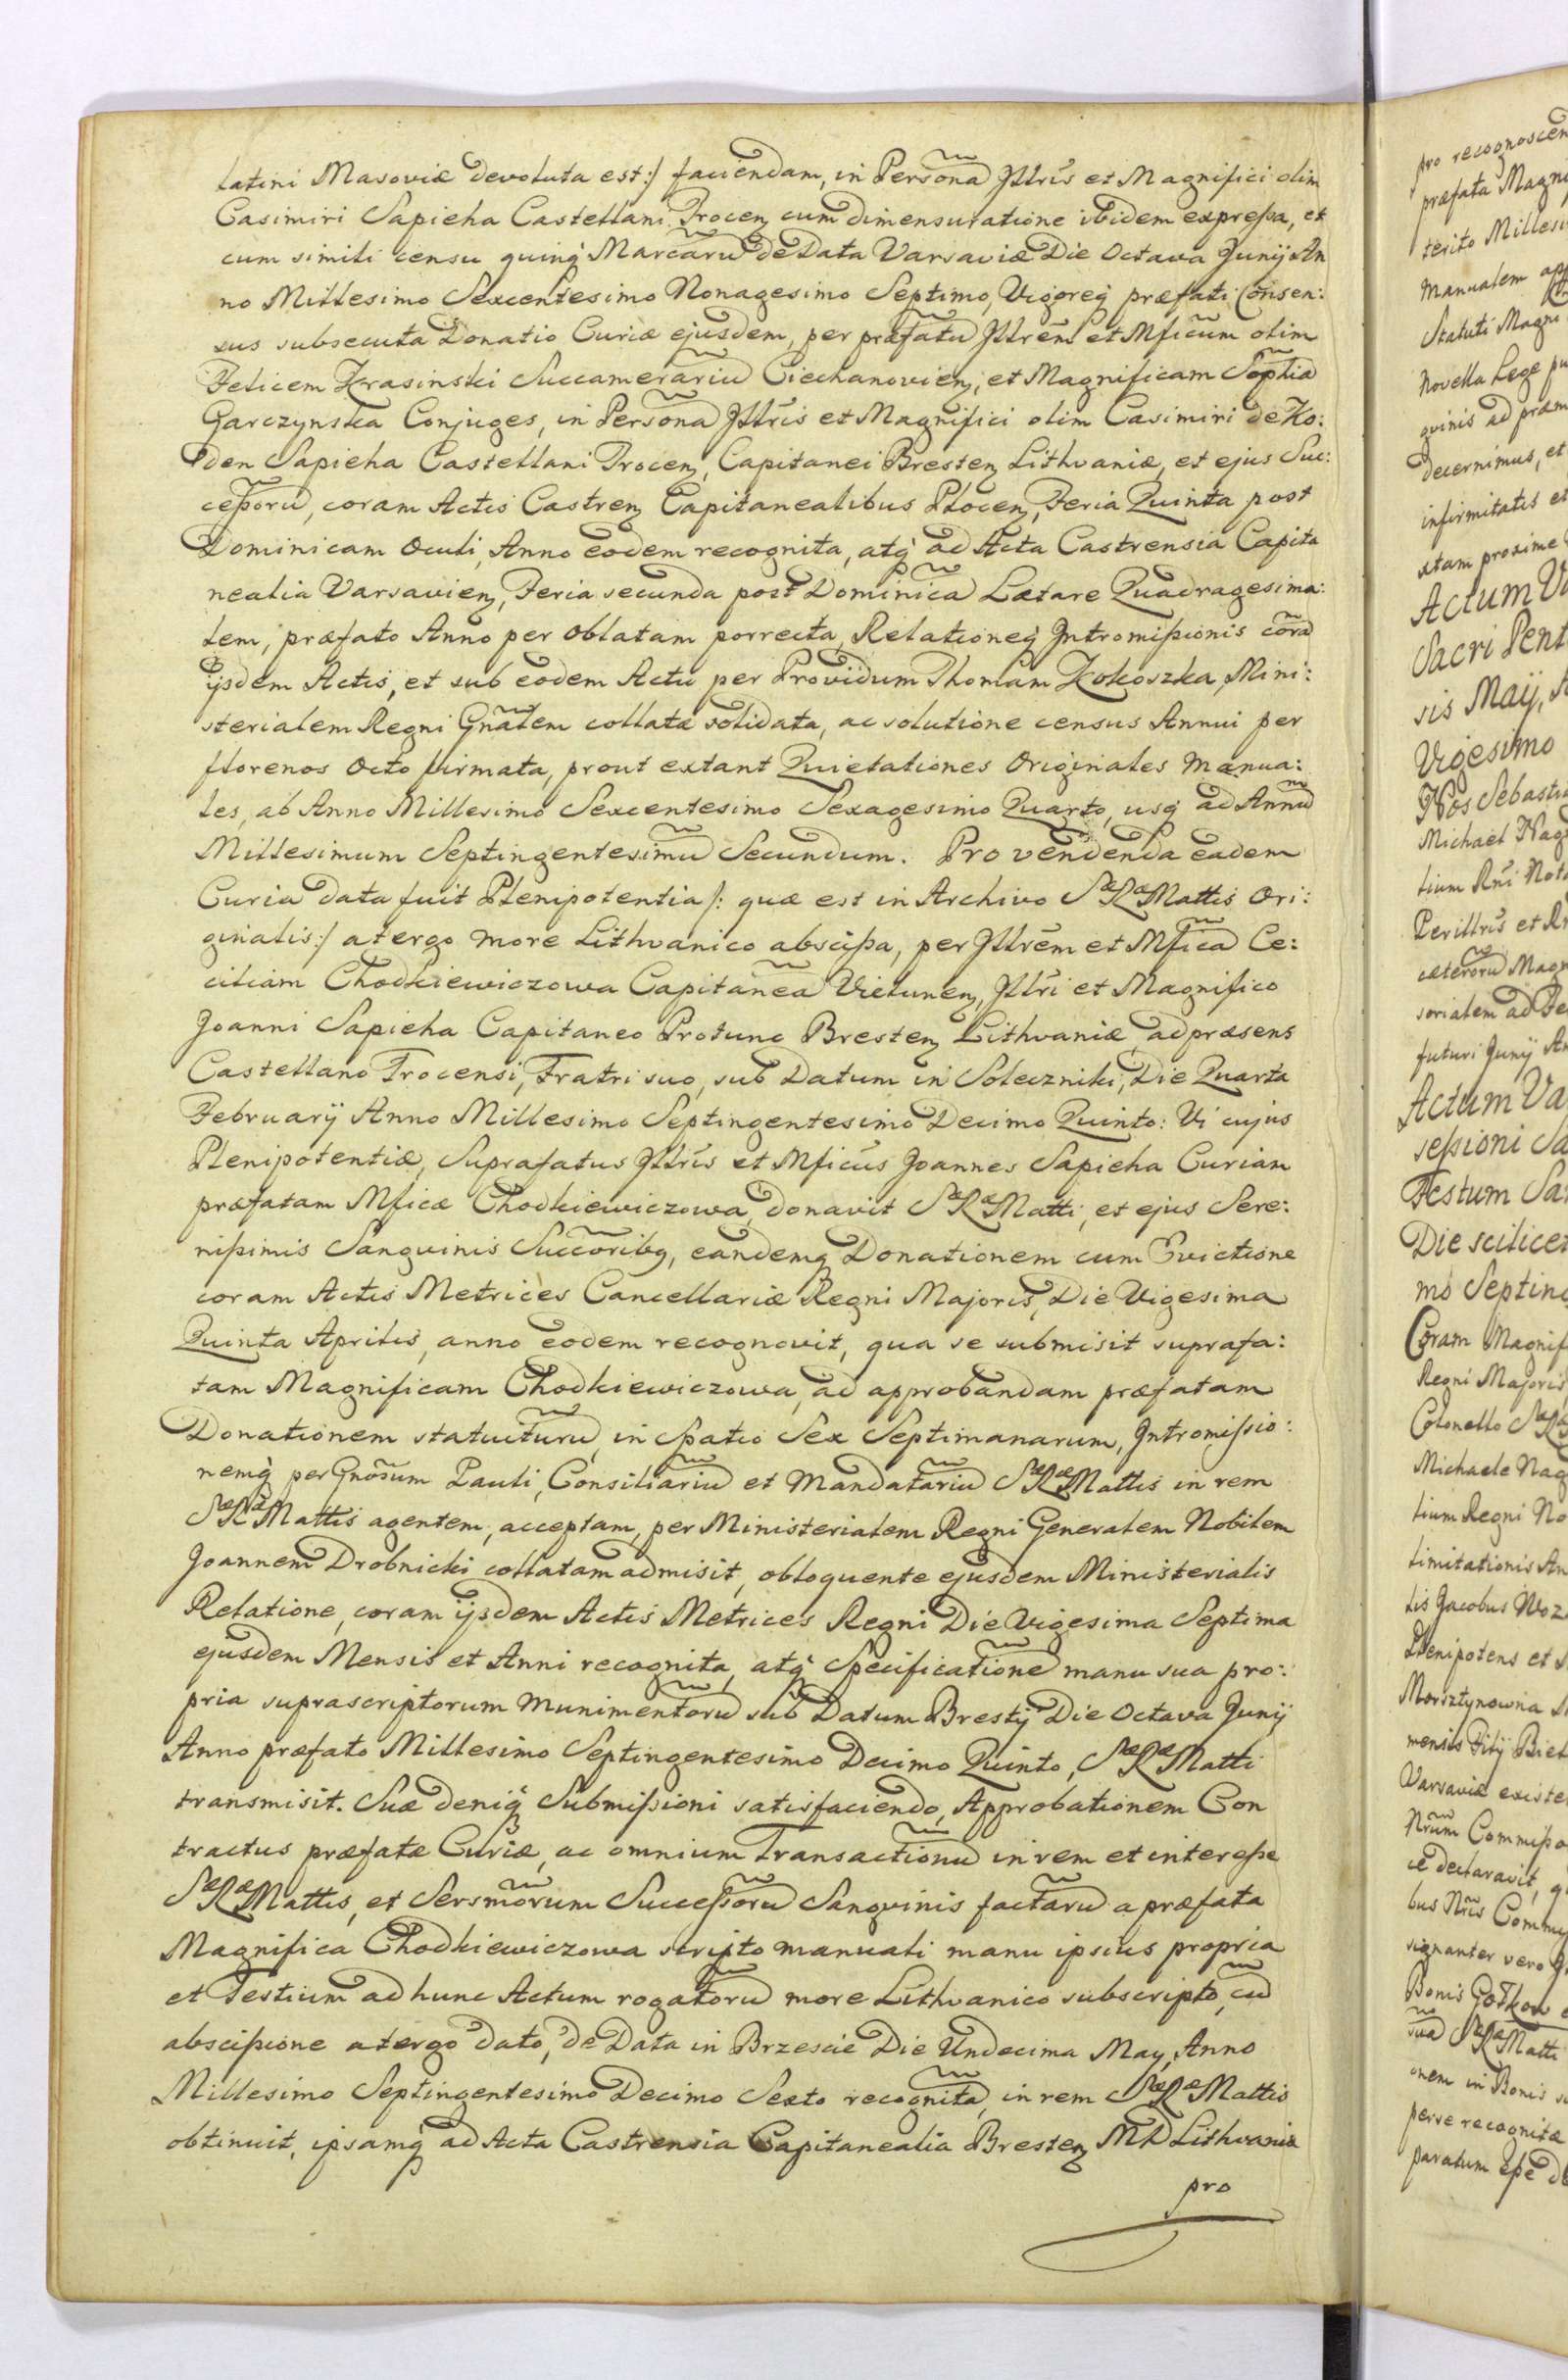 latini Masoviæ devoluta est:/ faciendam, in Persona͠ Jllrĩs et Magnifici olim
Casimiri Sapieha Castellani Trocen̄ cum dimensuratione ibidem expreßa, et
cum simili censu quinq̀ Marcaru͠ de Data Varsaviæ Die Octava Junij An
no Millesimo Sexcentesimo Nonagesimo Septimo, Vigoreq̀ præfati Cõnsen:
sus subsecuta Donatio Curiæ ejusdem, per præfatu͠ Jllrẽm et Mficũm olim
Felicem Krasinski Succamerariu͠ Ciechanovien̄, et Magnificam Sophia͠
Garczynska Conjuges, in Persona͠ Jllrĩs et Magnifici olim Casimiri de Ko:
den Sapieha Castellani Trocen̄, Capitanei Bresten̄ Lithvaniæ, et ejus Suc:
ceßoru͠, coram Actis Castren̄ Capitanealibus Plocen̄, Feria Quinta post
Dominicam Oculi, Anno eodem recognita, atq̀ ad Acta Castrensia Capita
nealia Varsavien̄, Feria secunda post Dominica͠ Lætare Quadragesima:
lem, præfato Anno per Oblatam porrecta, Relationeq̀ Jntromißionis cora͠
ijsdem Actis, et sub eodem Actu per Providum Thomam Kokoszka, Mini:
sterialem Regni Gnãlem collata solidata, ac solutione census Annui per
florenos Octo firmata, prout extant Quietationes Originales Manua:
les, ab Anno Millesimo Sexcentesimo Sexagesimo Quarto, usq̀ ad Annu͠
Millesimum Septingentesimu͠ Secundum. Pro vendenda eadem
Curia data fuit Plenipotentia /: quæ est in Archivo SæRæMattis Ori:
ginalis:/ a tergo more Lithvanico abscißa, per Jllrẽm et Mfica͠ Ce:
ciliam Chodkiewiczowa Capitanea͠ Vielunen̄, Jllrĩ et Magnifico
Joanni Sapieha Capitaneo Protunc Bresten̄ Lithvaniæ ad præsens
Castellano Trocensi, Fratri suo, sub Datum in Soleczniki, Die Quarta
Februarij Anno Millesimo Septingentesimo Decimo Quinto: Vi cujus
Plenipotentiæ, Suprafatus Jllrĩs et Mficũs Joannes Sapieha Curiam
præfatam Mficæ Chodkiewiczowa, donavit SæRæMatti, et ejus Sere:
nißimis Sanguinis Succõribq, eandemq Donationem cum Evictione
coram Actis Metrices Cancellariæ Regni Majoris, Die Vigesima
Quinta Aprilis, anno eodem recognovit, qua se submisit suprafa:
tam Magnificam Chodkiewiczowa, ad approbandam præfatam
Donationem statuituru͠ in Spatio Sex Septimanarum, Jntromißio:
nemq̀ per Gnõsum Pauli, Consiliariu͠ et Mandatariu͠ SæRæMattis in rem
SæRæMattis agentem, acceptam, per Ministerialem Regni Generalem Nobilem
Joannem Drobnicki collatam admisit, obloquente ejusdem Ministerialis
Relatione, coram ijsdem Actis Metrices Regni Die Vigesima Septima
ejusdem Mensis et Anni recognita, atq̀ Specificatione͠ manu sua pro:
pria suprascriptorum Munimentoru͠ sub Datum Brestij Die Octava Junij
Anno præfato Millesimo Septingentesimo Decimo Quinto, SæRæMatti
transmisit. Suæ deniq̀ Submißioni satisfaciendo, Approbationem Con
tractus præfatæ Curiæ, ac omnium Transactionu͠ in rem et intereße
SæRæMattis, et Sersmõrum Succeßoru͠ Sanguinis factaru͠ a præfata
Magnifica Chodkiewiczowa scripto manuali manu ipsius propria
et Testium ad hunc Actum rogatoru͠ more Lithvanico subscripto, cu͠
abscißione a tergo dato, de Data in Brzescie Die Undecima May, Anno
Millesimo Septingentesimo Decimo Sexto recognita͠, in rem SæRæMattis
obtinuit, ipsamq̀ ad Acta Castrensia Capitanealia Bresten̄ MD Lithvaniæ
pro
pro recognoscen
præfata Magni
terito Millesi
Manualem app
Statuti Magni
Novella Lege pu
quinis ad præm
decernimus, et
infirmitatis et
xtam proxime
Actum Va
Sacri Pent
sis Maij, A
Vigesimo
Nos Sebasti
Michael Nag
tium Rñi Nota
Perillrĩs et R
cæteroru͠ Magn
sorialem ad Fe
futuri Junij An
Actum Va
seßioni Sa
Festum San
Die scilicet
mo Septing
Coram Magnif
Regni Majoris
Colonello SæRæ
Michaele Nag
tium Regni No
limitationis An
lis Jacobus Woz
Plenipotens et
Morsztynowna
mensis Filij Biel
Varsaviæ existe
Nrũm Commißo
ce declaravit, q
bus Nrĩs Commi
signanter vero
Bonis Gołkow
sua͠ SæRæMatti
onem in Bonis
perve recognitæ
paratum eße